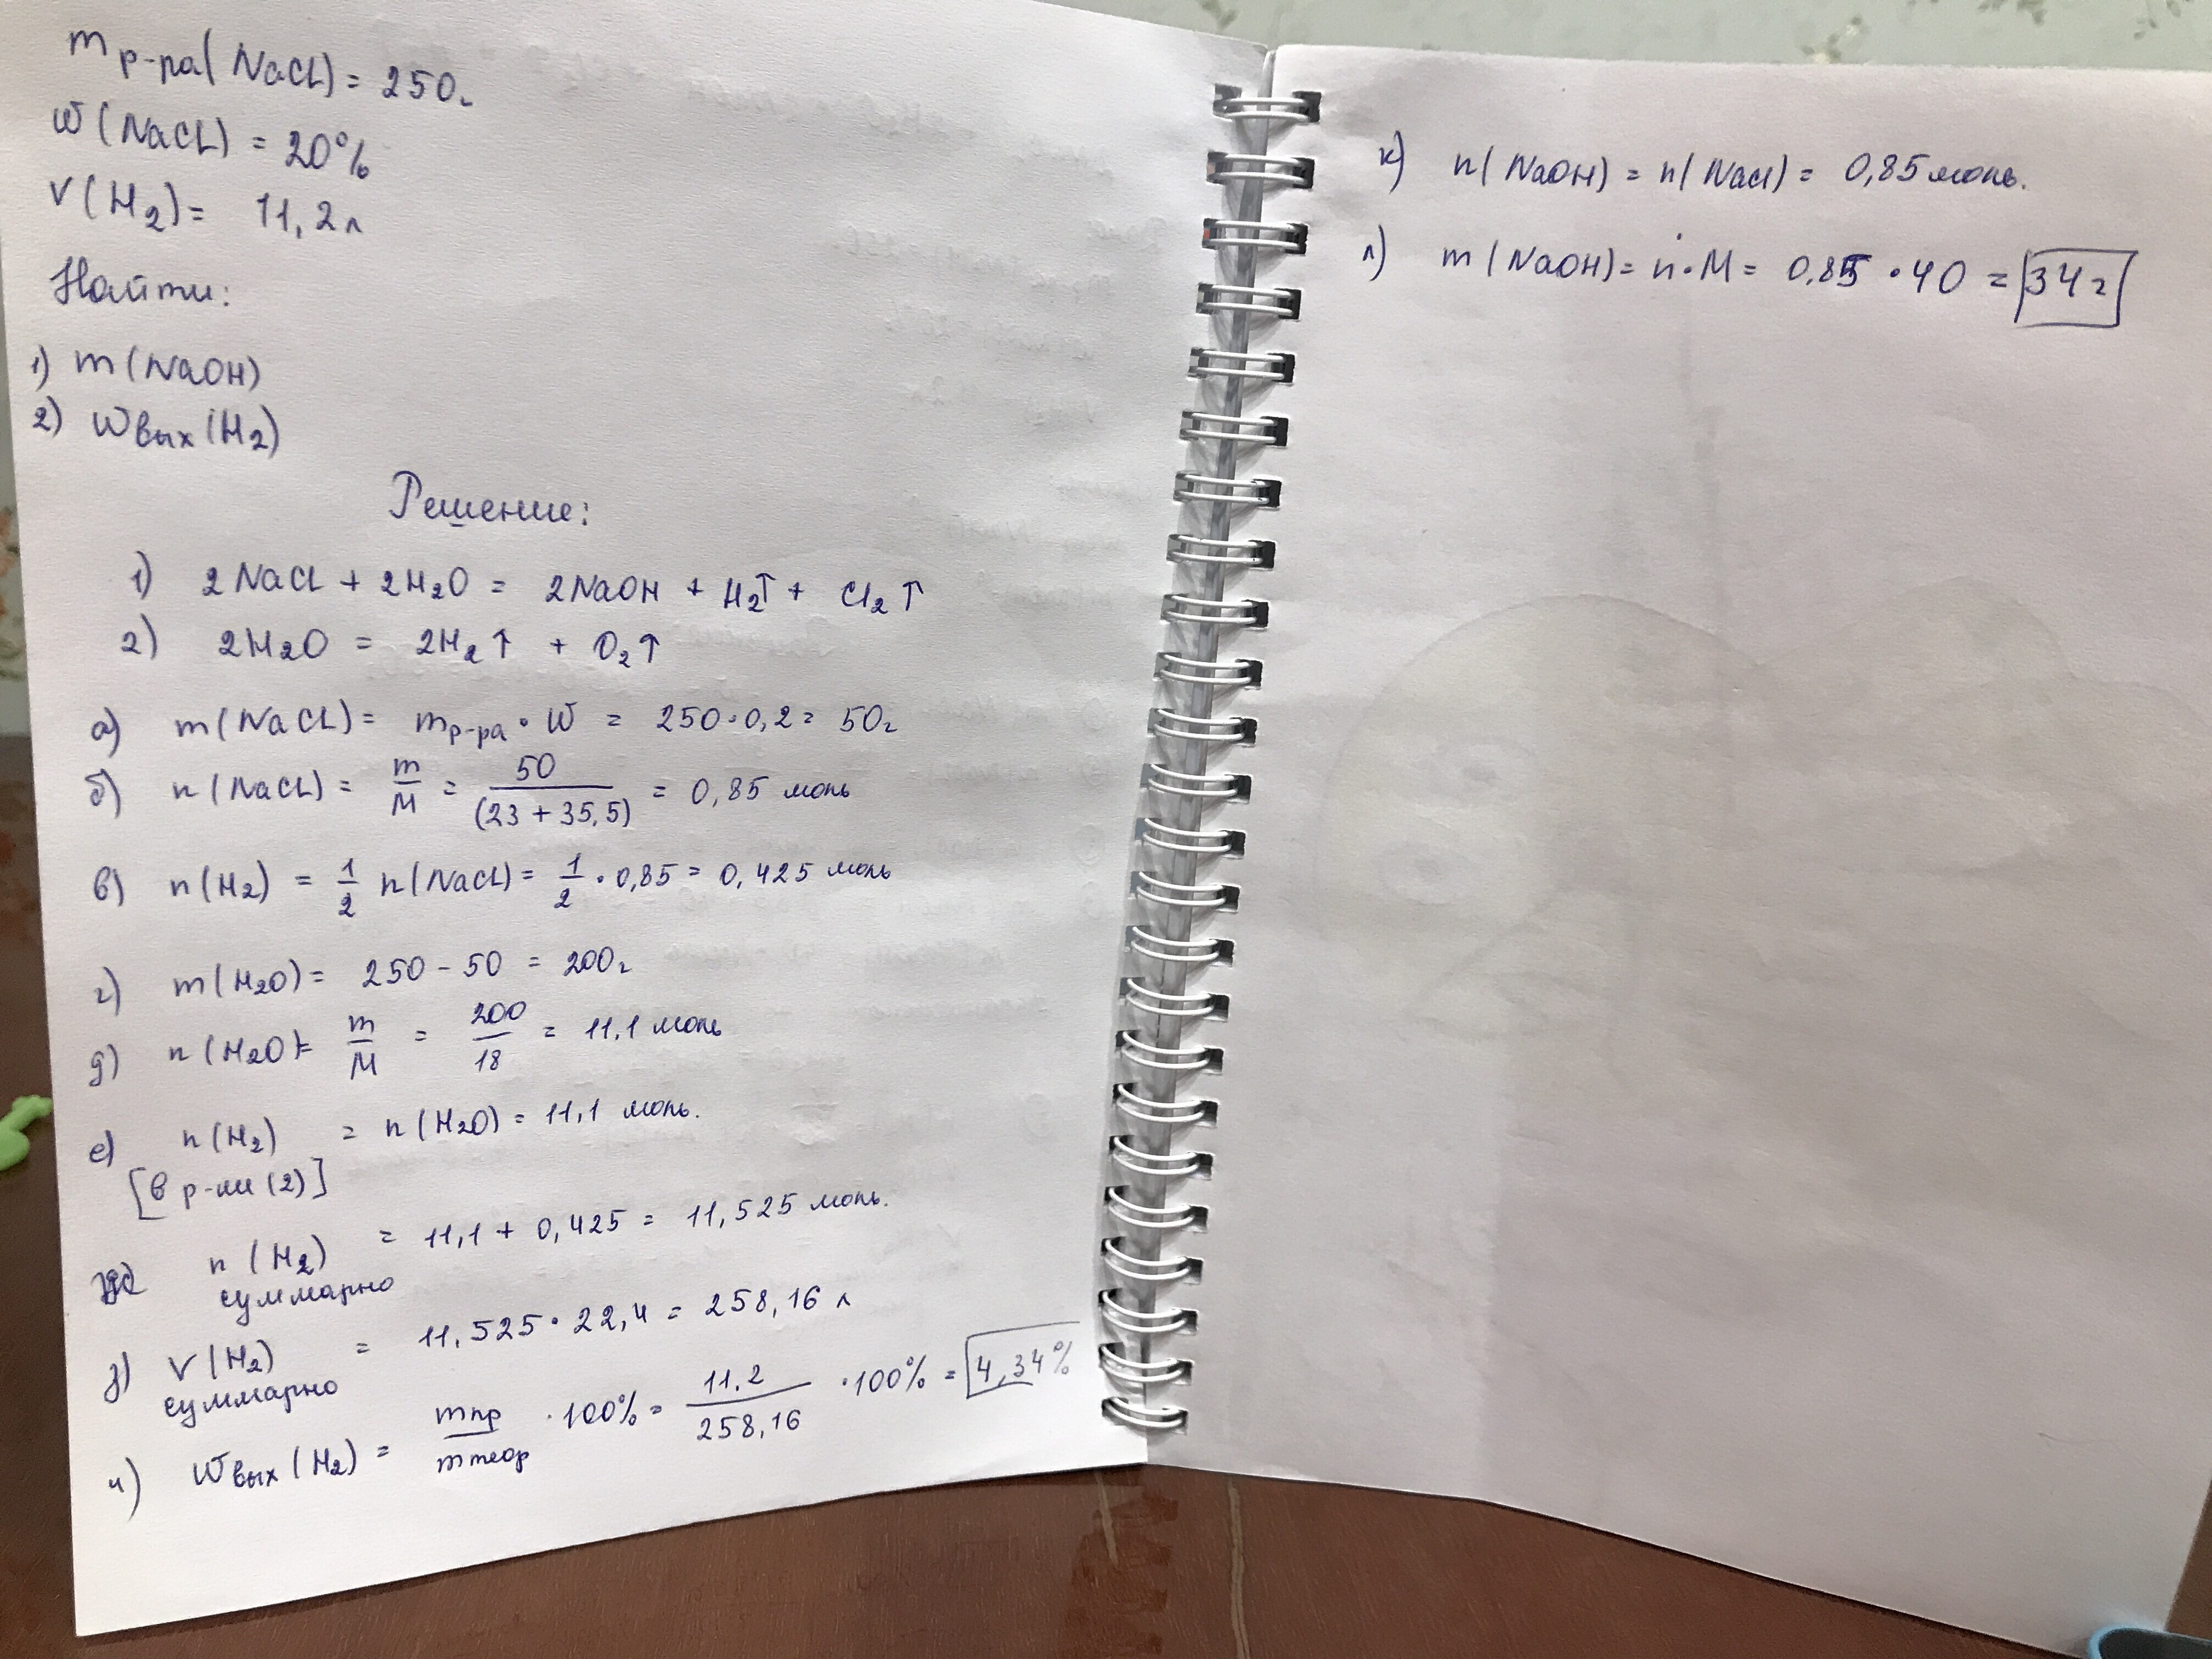 m р-ра(NaCl) = 250г
W(NaCl) = 20%
V(H₂) = 11,2л
Найти:
1) m(NaOH)
2) Wвых(H₂)
Решение:
1) 2NaCl + 2H₂O = 2NaOH + H₂↑ + Cl₂↑
2) 2H₂O = 2H₂↑ + O₂↑
а) m(NaCl) = mр-ра · W = 250·0,2 = 50г
б) n(NaCl) = m/M = 50/(23+35,5) = 0,85 моль
в) n(H₂) = 1/2 n(NaCl) = 1/2 · 0,85 = 0,425 моль
г) m(H₂O) = 250 - 50 = 200г
д) n(H₂O) = m/M = 200/18 = 11,1 моль
е) n(H₂) = n(H₂O) = 11,1 моль.
[в р-ии (2)]
n(H₂) = 11,1 + 0,425 = 11,525 моль.
суммарно
з) V(H₂) = 11,525 · 22,4 = 258,16 л
суммарно
и) Wвых(H₂) = mпр/mтеор · 100% = 11.2/258,16 · 100% = 4,34%
к) n(NaOH) = n(NaCl) = 0,85 моль.
л) m(NaOH) = n·M = 0,85 · 40 = 34г